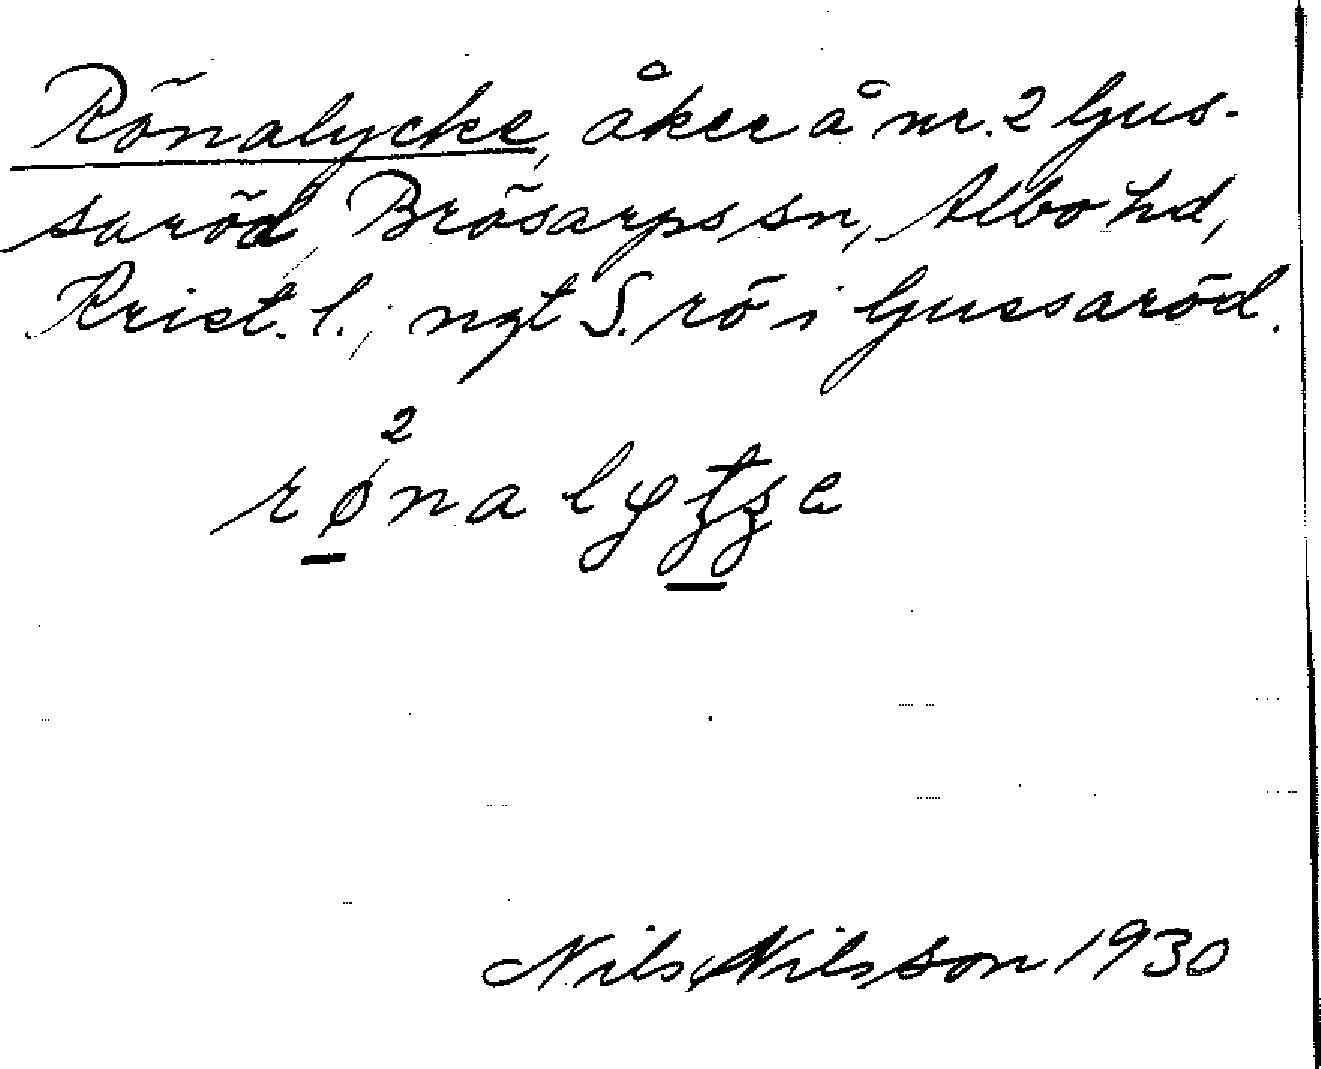 Rönalycke, åker å nr. 2 Ljus-
saröd, Brösarps sn, Albo hd,
Krist. l.; ngt S. rö i Ljussaröd.
2
rønalyʈʂe
Nils Nilsson 1930